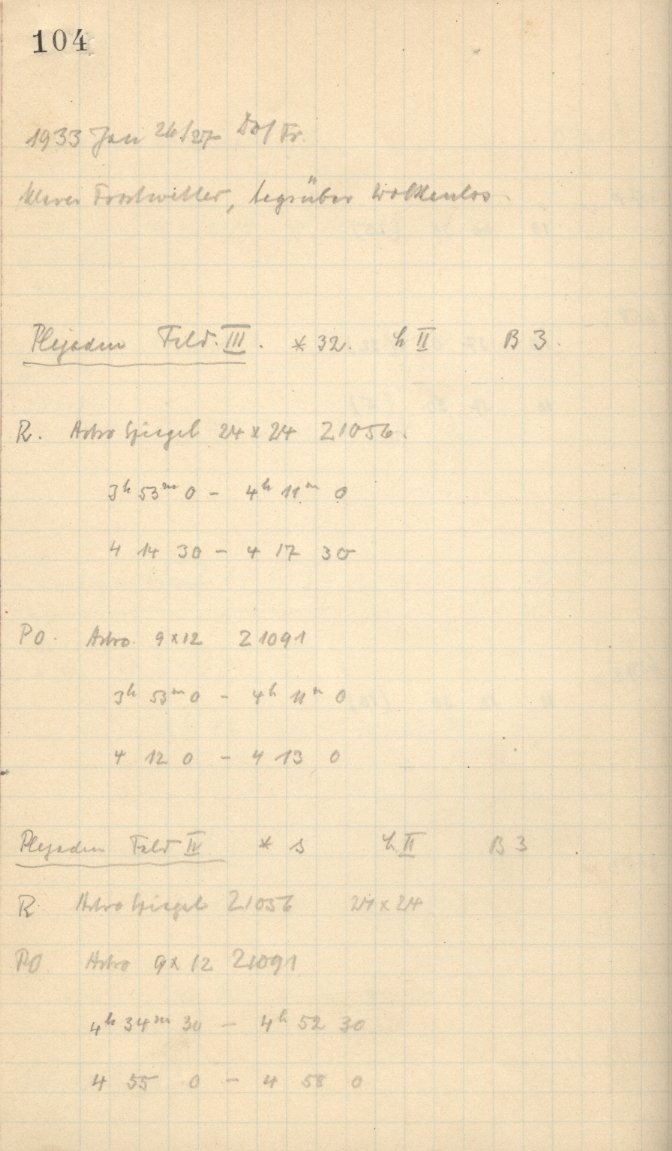 104
1933 Jan 26/27 Do/Fr.
klares Frostwetter, tagsüber wolkenlos
Plejaden Feld III. * 32. h II B 3.
R. Astro Spiegel 24 x 24 Z1056.
3h 53m 0 - 4h 11m 0
4 14 30 - 4 17 30
PO. Astro. 9x12 Z1091
3h 53m 0 - 4h 11m 0
4 12 0 - 4 13 0
Plejaden Feld IV * s h II B 3
R Astro Spiegel Z1056 24 x 24
PO Astro 9 x 12 Z1091
4h 34m 30 - 4h 52 30
4 55 0 - 4 58 0